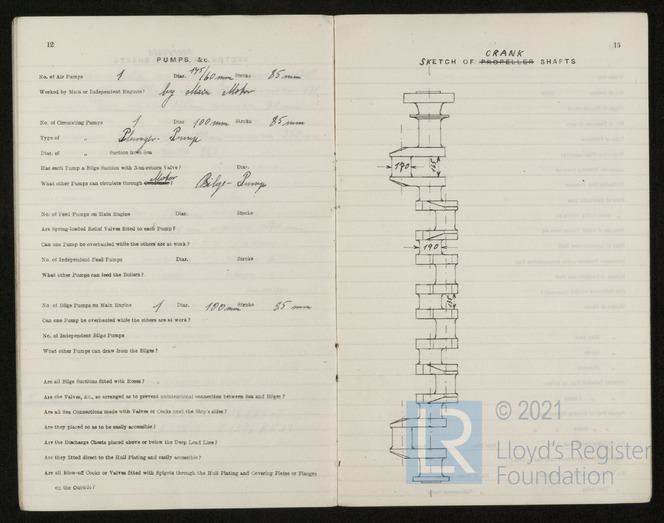 12
PUMPS, &c.
No. of Air Pumps 1 Diar. 145/60 mm Stroke 85 mm
Worked by Main or Independent Engines? by Main Motor
No. of Circulating Pumps 1 Diar. 100 mm Stroke 85 mm
Type of " Plunger-Pump
Diar. of " Suction from Sea
Has each Pump a Bilge Suction with Non-return Valve? Diar.
What other Pumps can circulate through Motor? Bilge-Pump
No. of Feed Pumps on Main Engine Diar. Stroke
Are Spring-loaded Relief Valves fitted to each Pump?
Can one Pump be overhauled while the others are at work?
No. of Independent Feed Pumps Diar. Stroke
What other Pumps can feed the Boilers?
No. of Bilge Pumps on Main Engine 1 Diar. 100 mm Stroke 85 mm
Can one Pump be overhauled while the others are at work?
No. of Independent Bilge Pumps
What other Pumps can draw from the Bilges?
Are all Bilge Suctions fitted with Roses?
Are the Valves, &c., so arranged as to prevent unintentional connection between Sea and Bilges?
Are all Sea Connections made with Valves or Cocks next the Ship's sides?
Are they placed so as to be easily accessible?
Are the Discharge Chests placed above or below the Deep Load Line?
Are they fitted direct to the Hull Plating and easily accessible?
Are all Blow-off Cocks or Valves fitted with Spigots through the Hull Plating and Covering Plates or Flanges
on the Outside?
13
CRANK
SKETCH OF PROPELLER SHAFTS
190
190
LR
© 2021
Lloyd's Register
Foundation